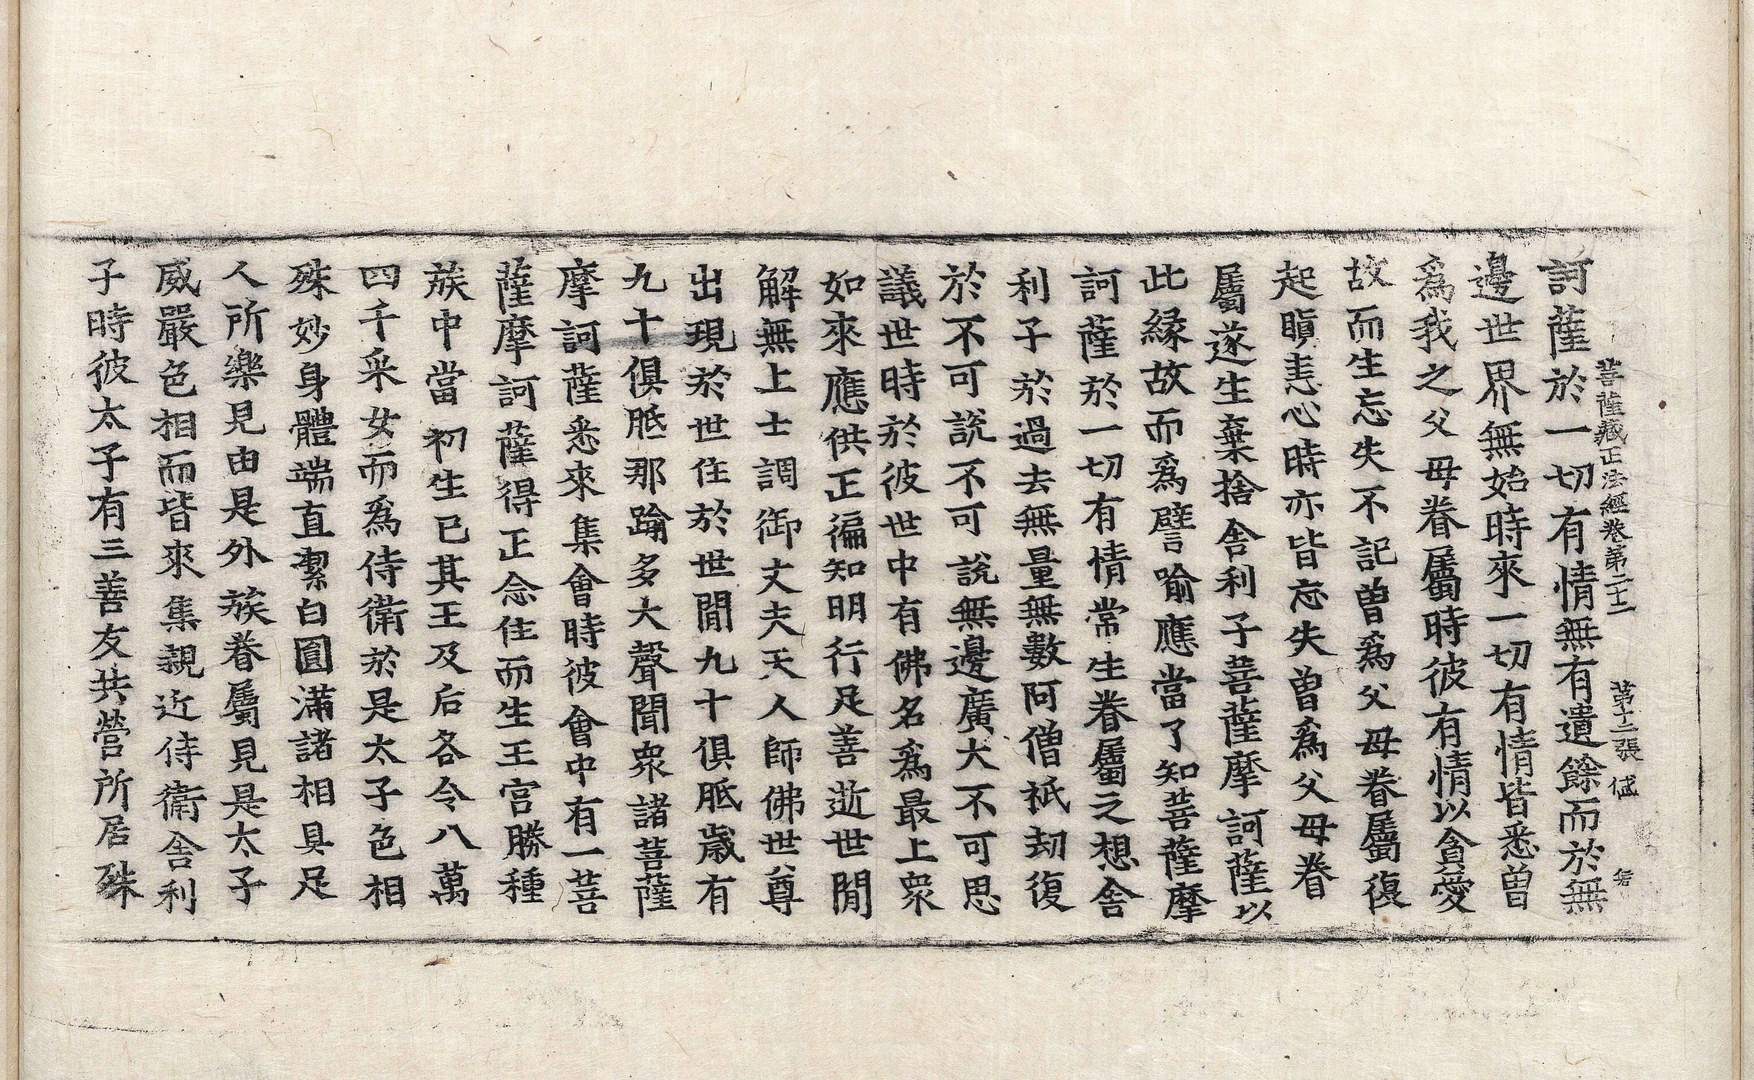 菩薩藏正法經卷第二十二　第十二張
訶薩於一切有情無有遺餘而於無
邊世界無始時來一切有情皆悉曽
爲我之父母眷屬時彼有情以貪愛
故而生忘失不記曽爲父母眷屬復
起瞋恚心時亦皆忘失曽爲父母眷
屬遂生棄捨舍利子菩薩摩訶薩以
此緣故而爲譬喻應當了知菩薩摩
訶薩於一切有情常生眷屬之想舍
利子於過去無量無數阿僧祇劫復
於不可說不可說無邊廣大不可思
議世時於彼世中有佛名爲最上衆
如來應供正徧知明行足善逝世閒
解無上士調御丈夫天人師佛世尊
出現於世住於世閒九十俱胝歲有
九十俱胝那踰多大聲聞衆諸菩薩
摩訶薩悉來集會時彼會中有一菩
薩摩訶薩得正念住而生王宮勝種
族中當初生已其王及后各令八萬
四千采女而爲侍衛於是太子色相
殊妙身體端直潔白圓滿諸相具足
人所樂見由是外族眷屬見是太子
威嚴色相而皆來集親近侍衛舍利
子時彼太子有三善友共營所居殊